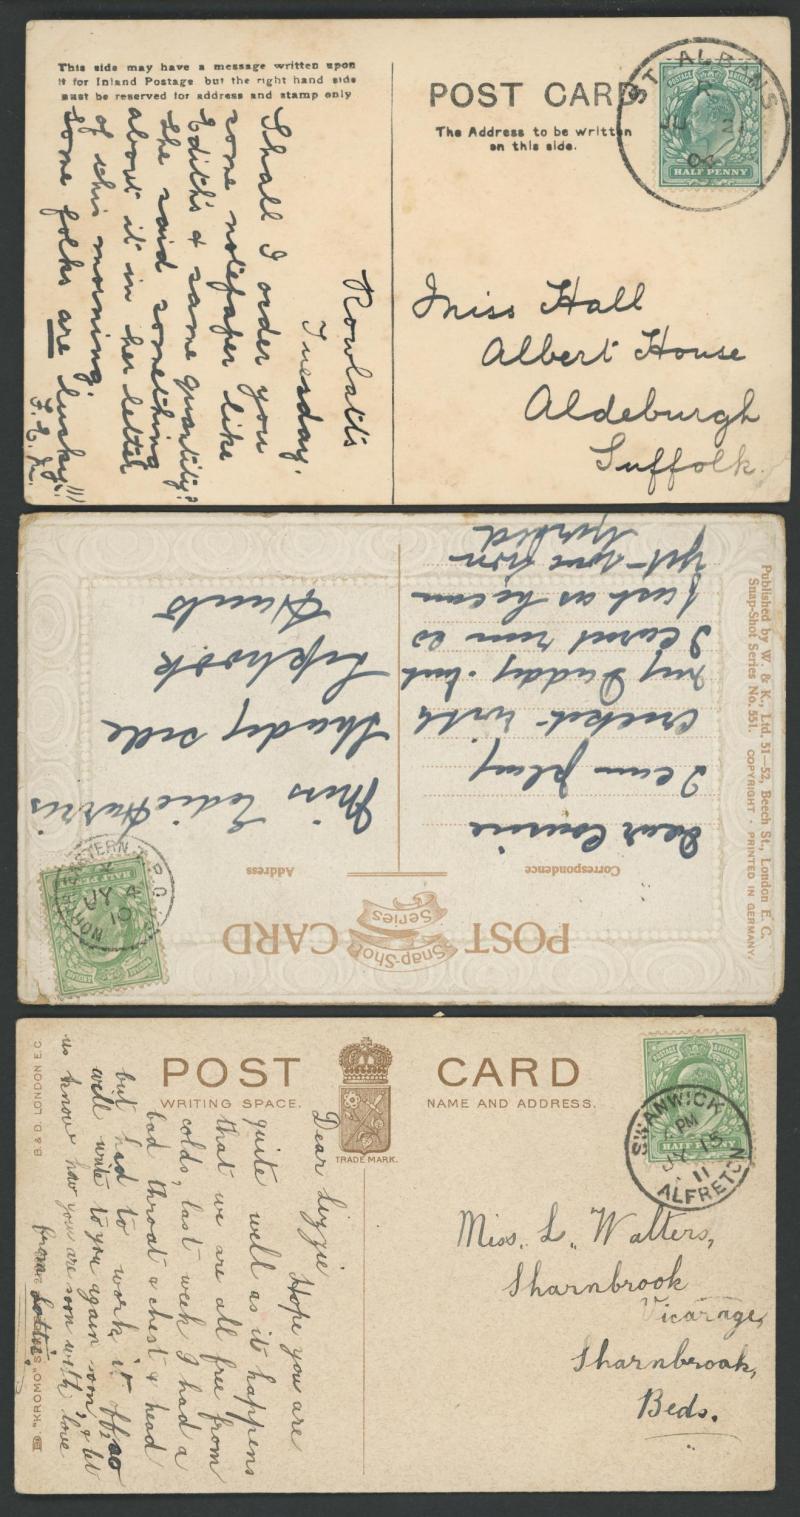 This side may have a message written upon
it for Inland Postage but the right hand side
must be reserved for address and stamp only
POST CARD
The Address to be written
on this side.
ST. ALBANS
JU
04
POSTAGE
HALF PENNY
Rowlatt's
Tuesday.
Shall I order you
some notepaper like
Edith's & same quantity?
She said something
about it in her letter
of this morning.
some folks are lucky!!!
Miss Hall
Albert House
Aldeburgh
Suffolk.
POST CARD
Snap-Shot
Series
Correspondence
Address
Dear Connie
I am play
cricket with
my Daddy. but
I carnt run as
fast as he can
yet
Miss Edie Harris
Shady side
Liphook
Hants
JY 4
10
HALF PENNY
Published by W. & K., Ltd. 51–52, Beech St., London E. C.
Snap-Shot Series No. 551. COPYRIGHT · PRINTED IN GERMANY.
POST CARD
WRITING SPACE.
NAME AND ADDRESS.
TRADE MARK.
SWANWICK
PM
JY 15
11
ALFRETON
HALF PENNY
B. & D. LONDON E.C
"KROMO"
Dear Lizzie
Hope you are
quite well as it happens
that we are all free from
colds, last week I had a
bad throat & chest & head
but had to work it off, so
well write to you again soon, & let
us know how you are soon with love
from Lottie.
Miss. L. Walters,
Sharnbrook
Vicarage,
Sharnbrook,
Beds.